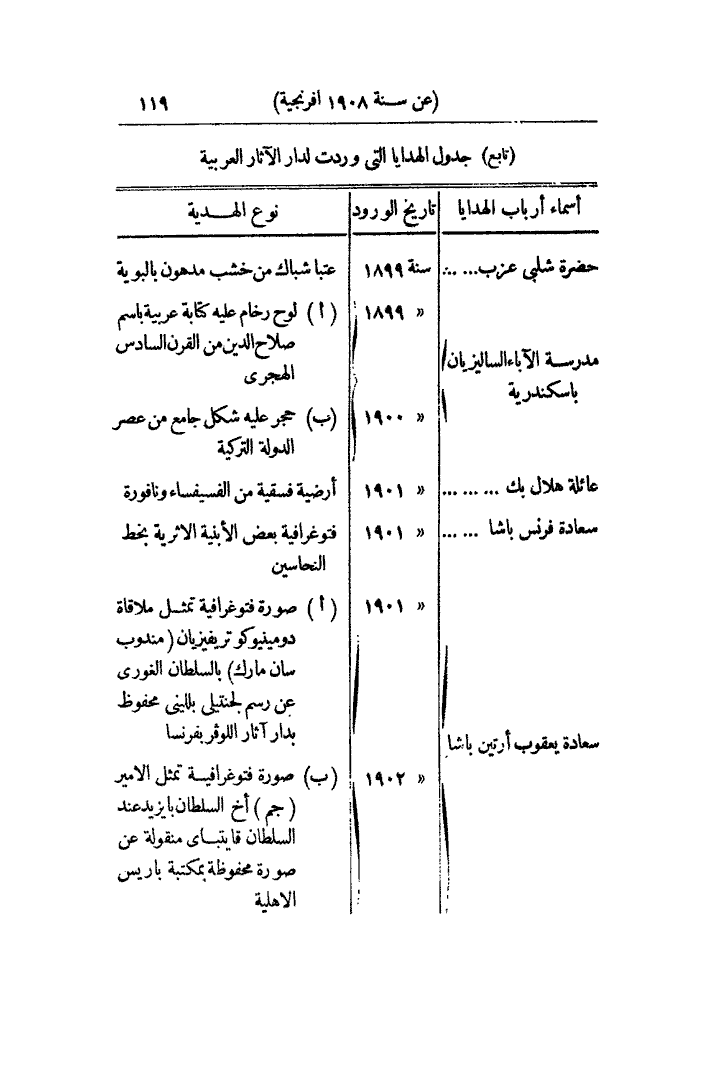 (عن سنة ١٩٠٨ افرنجية) ١١٩
(تابع) جدول الهدايا التى وردت لدار الآثار العربية
أسماء أرباب الهدايا تاريخ الورود نوع الهدية
حضرة شلبي عزب... ... سنة ١٨٩٩ عتبا شباك من خشب مدهون بالبوية
« ١٨٩٩ (أ) لوح رخام عليه كتابة عربية باسم
صلاح الدين من القرن السادس
مدرسة الآباء الساليزيان
الهجرى
باسكندرية
« ١٩٠٠ (ب) حجر عليه شكل جامع من عصر
الدولة التركية
عائلة هلال بك ... ... ... « ١٩٠١ أرضية فسقية من الفسيفساء ونافورة
سعادة فرنس باشا ... ... « ١٩٠١ فتوغرافية بعض الأبنية الاثرية بخط
النحاسين
« ١٩٠١ (أ) صورة فتوغرافية تمثل ملاقاة
دومينيوكو تريفيزيان (مندوب
سان مارك) بالسلطان الغورى
عن رسم لجنتيلى بللينى محفوظ
بدار آثار اللوڤر بفرنسا
سعادة يعقوب أرتين باشا
« ١٩٠٢ (ب) صورة فتوغرافية تمثل الامير
(جم) أخ السلطان بايزيد عند
السلطان قايتباى منقولة عن
صورة محفوظة بمكتبة باريس
الاهلية